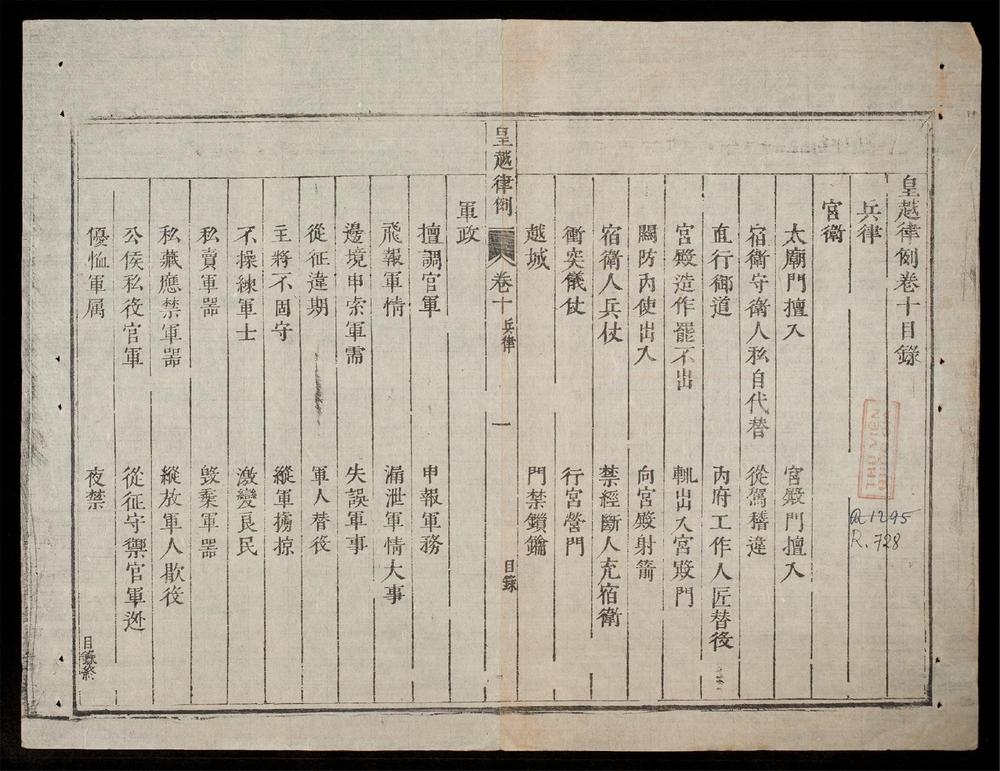 皇越律例卷十目錄
兵律
宮衛
太廟門擅入　宮殿門擅入
宿衛守衛人私自代替　從駕稽違
直行御道　內府工作人匠替役
宮殿造作罷不出　輒出入宮殿門
關防內使出入　向宮殿射箭
宿衛人兵仗　禁經斷人充宿衛
衝突儀仗　行宮營門
越城　門禁鎖鑰
皇越律例　卷十　兵律　一　目錄
軍政
擅調官軍　申報軍務
飛報軍情　漏泄軍情大事
邊境申索軍需　失誤軍事
從征違期　軍人替役
主將不固守　縱軍擄掠
不操練軍士　激變良民
私賣軍器　毀棄軍器
私藏應禁軍器　縱放軍人歇役
公侯私役官軍　從征守禦官軍逃
優恤軍属　夜禁
目錄終
THƯ VIỆN
A 1295
R. 728